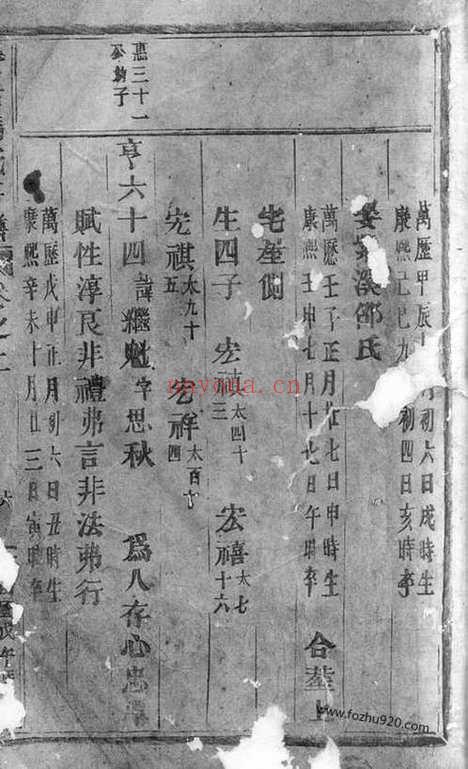 萬歷甲辰十月初六日戌時生
康熙己巳九初四日亥時卒
娶紫溪邵氏
萬歷壬子正月廿七日申時生
康熙壬申七月十七日午時卒
合葬
宅產側
生四子
宏禎太四十三
宏禧太七十六
宏祺太九十五
宏祥太百十四
惠三十一公鈞子
亨六十四
諱繼魁字思秋
為人存心忠
賦性淳良非禮弗言非法弗行
萬歷戊申正月初六日丑時生
康熙辛未十月廿三日寅時卒
nayona.cn
www.fozhu920.com